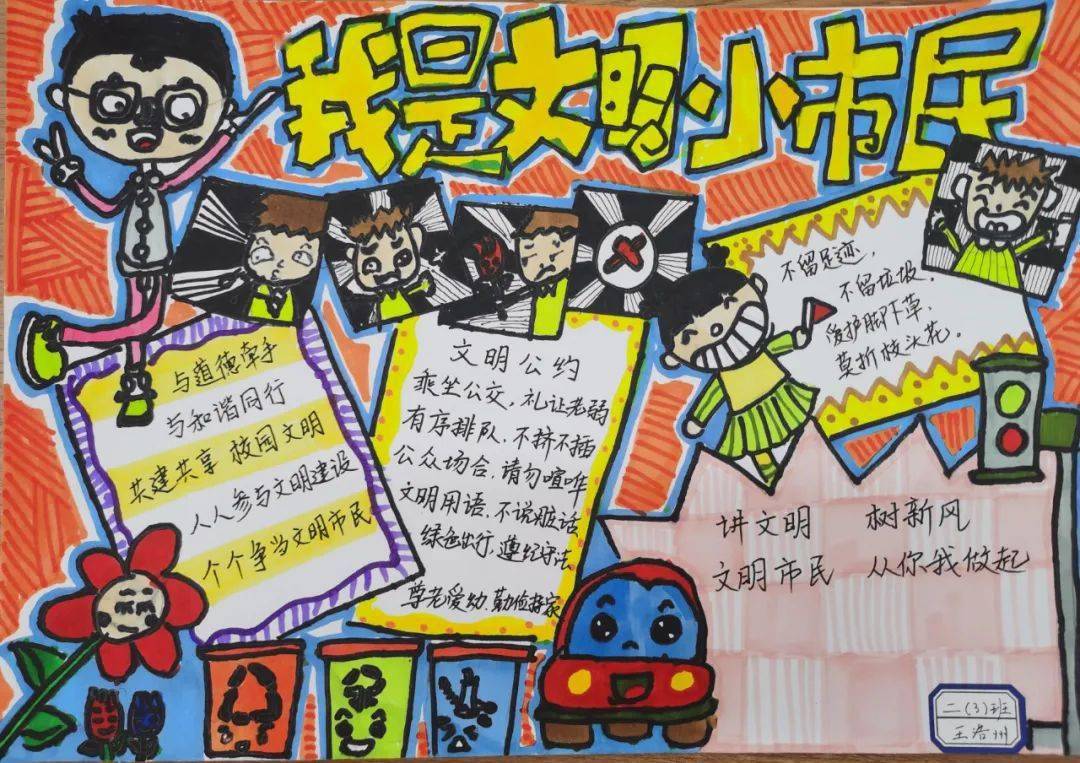 我是文明小市民
与道德牵手
与和谐同行
共建共享 校园文明
人人参与文明建设
个个争当文明市民
文明公约
乘坐公交，礼让老弱
有序排队，不挤不插
公众场合，请勿喧哗
文明用语，不说脏话
绿色出行，遵纪守法
尊老爱幼，勤俭持家
不留足迹，
不留垃圾。
爱护脚下草，
莫折枝头花。
讲文明 树新风
文明市民 从你我做起
二(3)班
王浩州